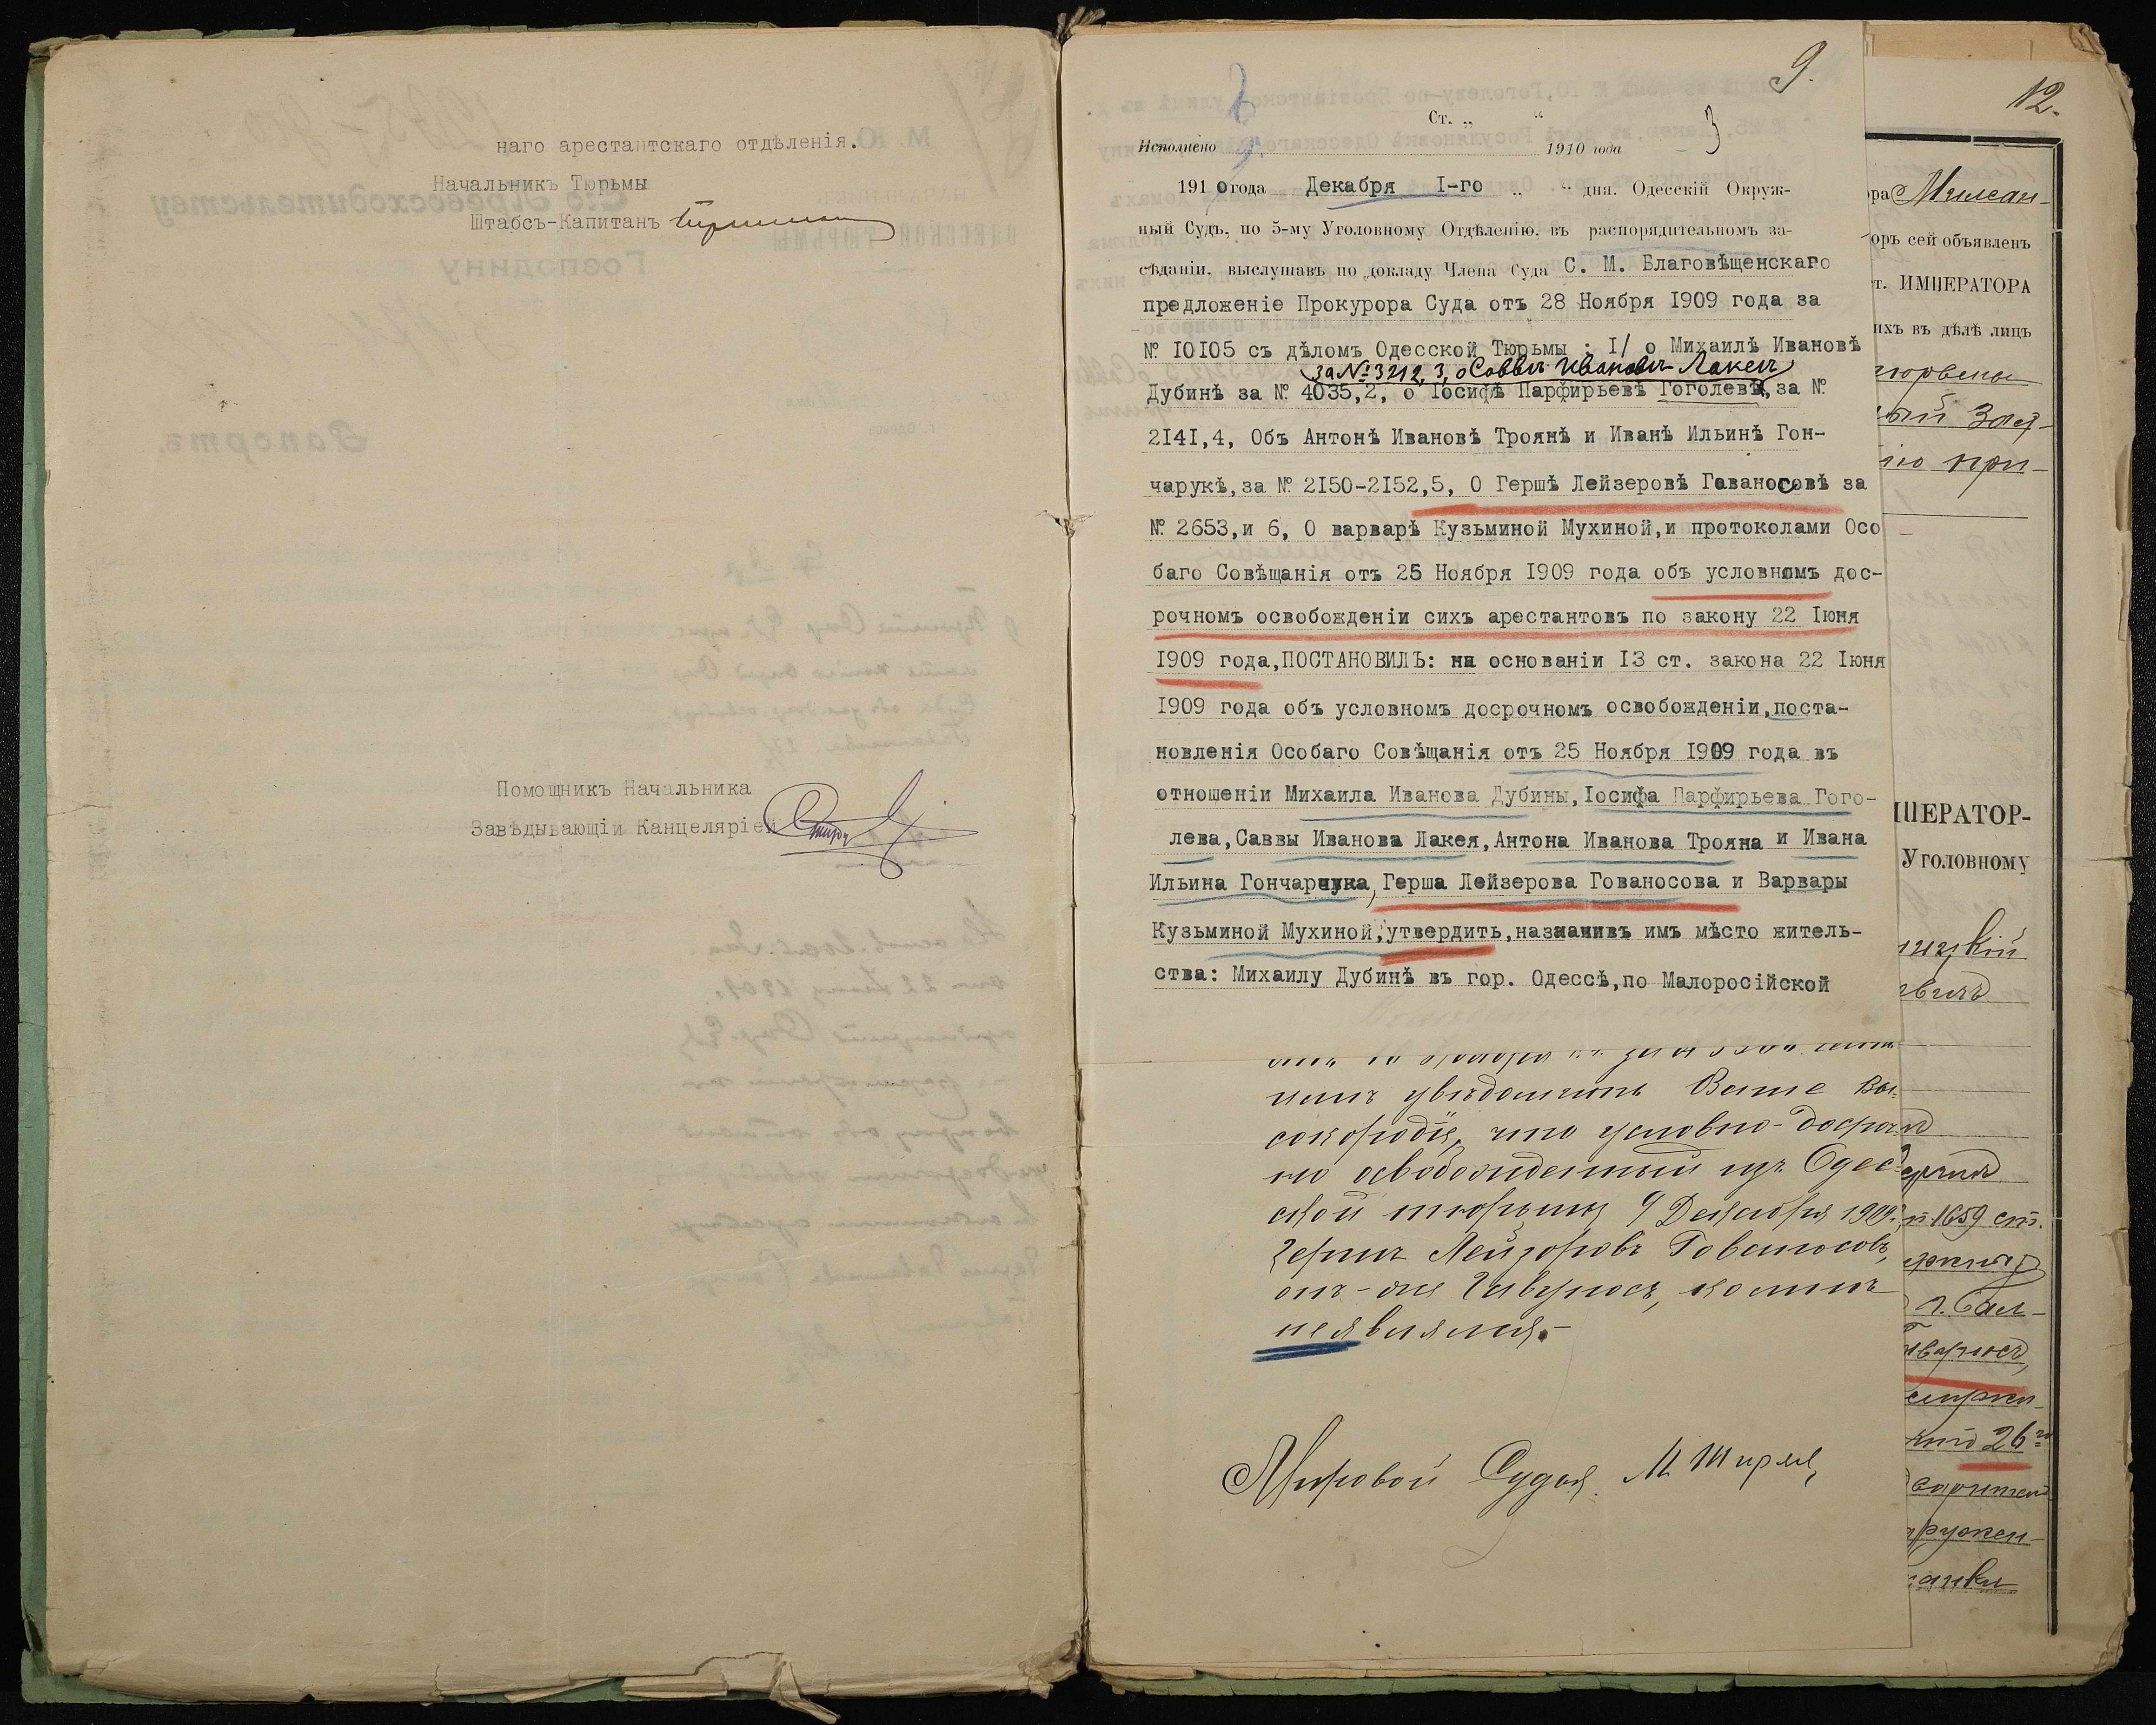 наго арестантскаго отдѣленія.
Начальникъ Тюрьмы
Штабсъ-Капитанъ
Помощникъ Начальника
Завѣдывающій Канцеляріей
9.
Ст. „ “
Исполнено 1910 года 3
1910 года Декабря I-го „ “ дня. Одесскій Окруж-
ный Судъ, по 5-му Уголовному Отдѣленію, въ распорядительномъ за-
сѣданіи, выслушавъ по докладу Члена Суда С. М. Благовѣщенскаго
предложеніе Прокурора Суда отъ 28 Ноября I909 года за
№ I0I05 съ дѣломъ Одесской Тюрьмы : I/ о Михаилѣ Ивановѣ
за № 3212, 3, о Саввѣ Ивановѣ Лакеѣ
Дубинѣ за № 4035,2, о Іосифѣ Парфирьевѣ Гоголевѣ, за №
2I4I,4, Объ Антонѣ Ивановѣ Троянѣ и Иванѣ Ильинѣ Гон-
чарукѣ,за № 2I50-2I52,5, О Гершѣ Лейзеровѣ Гаваносовѣ за
№ 2653,и 6, О варварѣ Кузьминой Мухиной,и протоколами Осо
баго Совѣщанія отъ 25 Ноября I909 года объ условномъ дос-
рочномъ освобожденіи сихъ арестантовъ по закону 22 Іюня
I909 года,ПОСТАНОВИЛЪ: на основаніи I3 ст. закона 22 Іюня
I909 года объ условномъ досрочномъ освобожденіи,поста-
новленія Особаго Совѣщанія отъ 25 Ноября I909 года въ
отношеніи Михаила Иванова Дубины,Іосифа Парфирьева Гого-
лева,Саввы Иванова Лакея,Антона Иванова Трояна и Ивана
Ильина Гончарчука, Герша Лейзерова Гованосова и Варвары
Кузьминой Мухиной,утвердить,назнанивъ имъ мѣсто житель-
ства: Михаилу Дубинѣ въ гор. Одессѣ,по Малоросійской
увѣдомить Ваше Вы-
сокородіе, что условно-досроч-
но освобожденный изъ Одес-
ской тюрьмы 9 Декабря 1909 г.
Гершъ Лейзоровъ Гованосовъ,
онъ-же Гиверносъ, ко мнѣ
не являлся.-
Мировой Судья
12.
Милеан-
оръ сей объявленъ
т. ИМПЕРАТОРА
ихъ въ дѣлѣ лицъ
при-
ПЕРАТОР-
Уголовному
1659 ст.
26